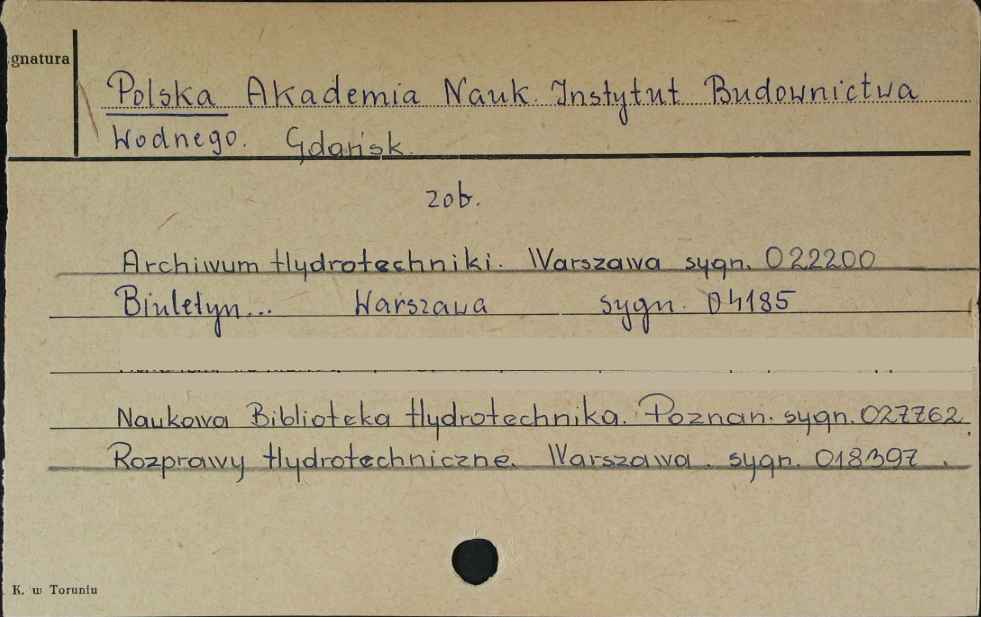 gnatura
Polska Akademia Nauk. Instytut Budownictwa
Wodnego. Gdańsk.
zob.
Archiwum Hydrotechniki. Warszawa sygn. 022200
Biuletyn... Warszawa sygn. 04185
Naukowa Biblioteka Hydrotechnika. Poznan. sygn. 027762.
Rozprawy Hydrotechniczne. Warszawa. sygn. 018397.
K. w Toruniu